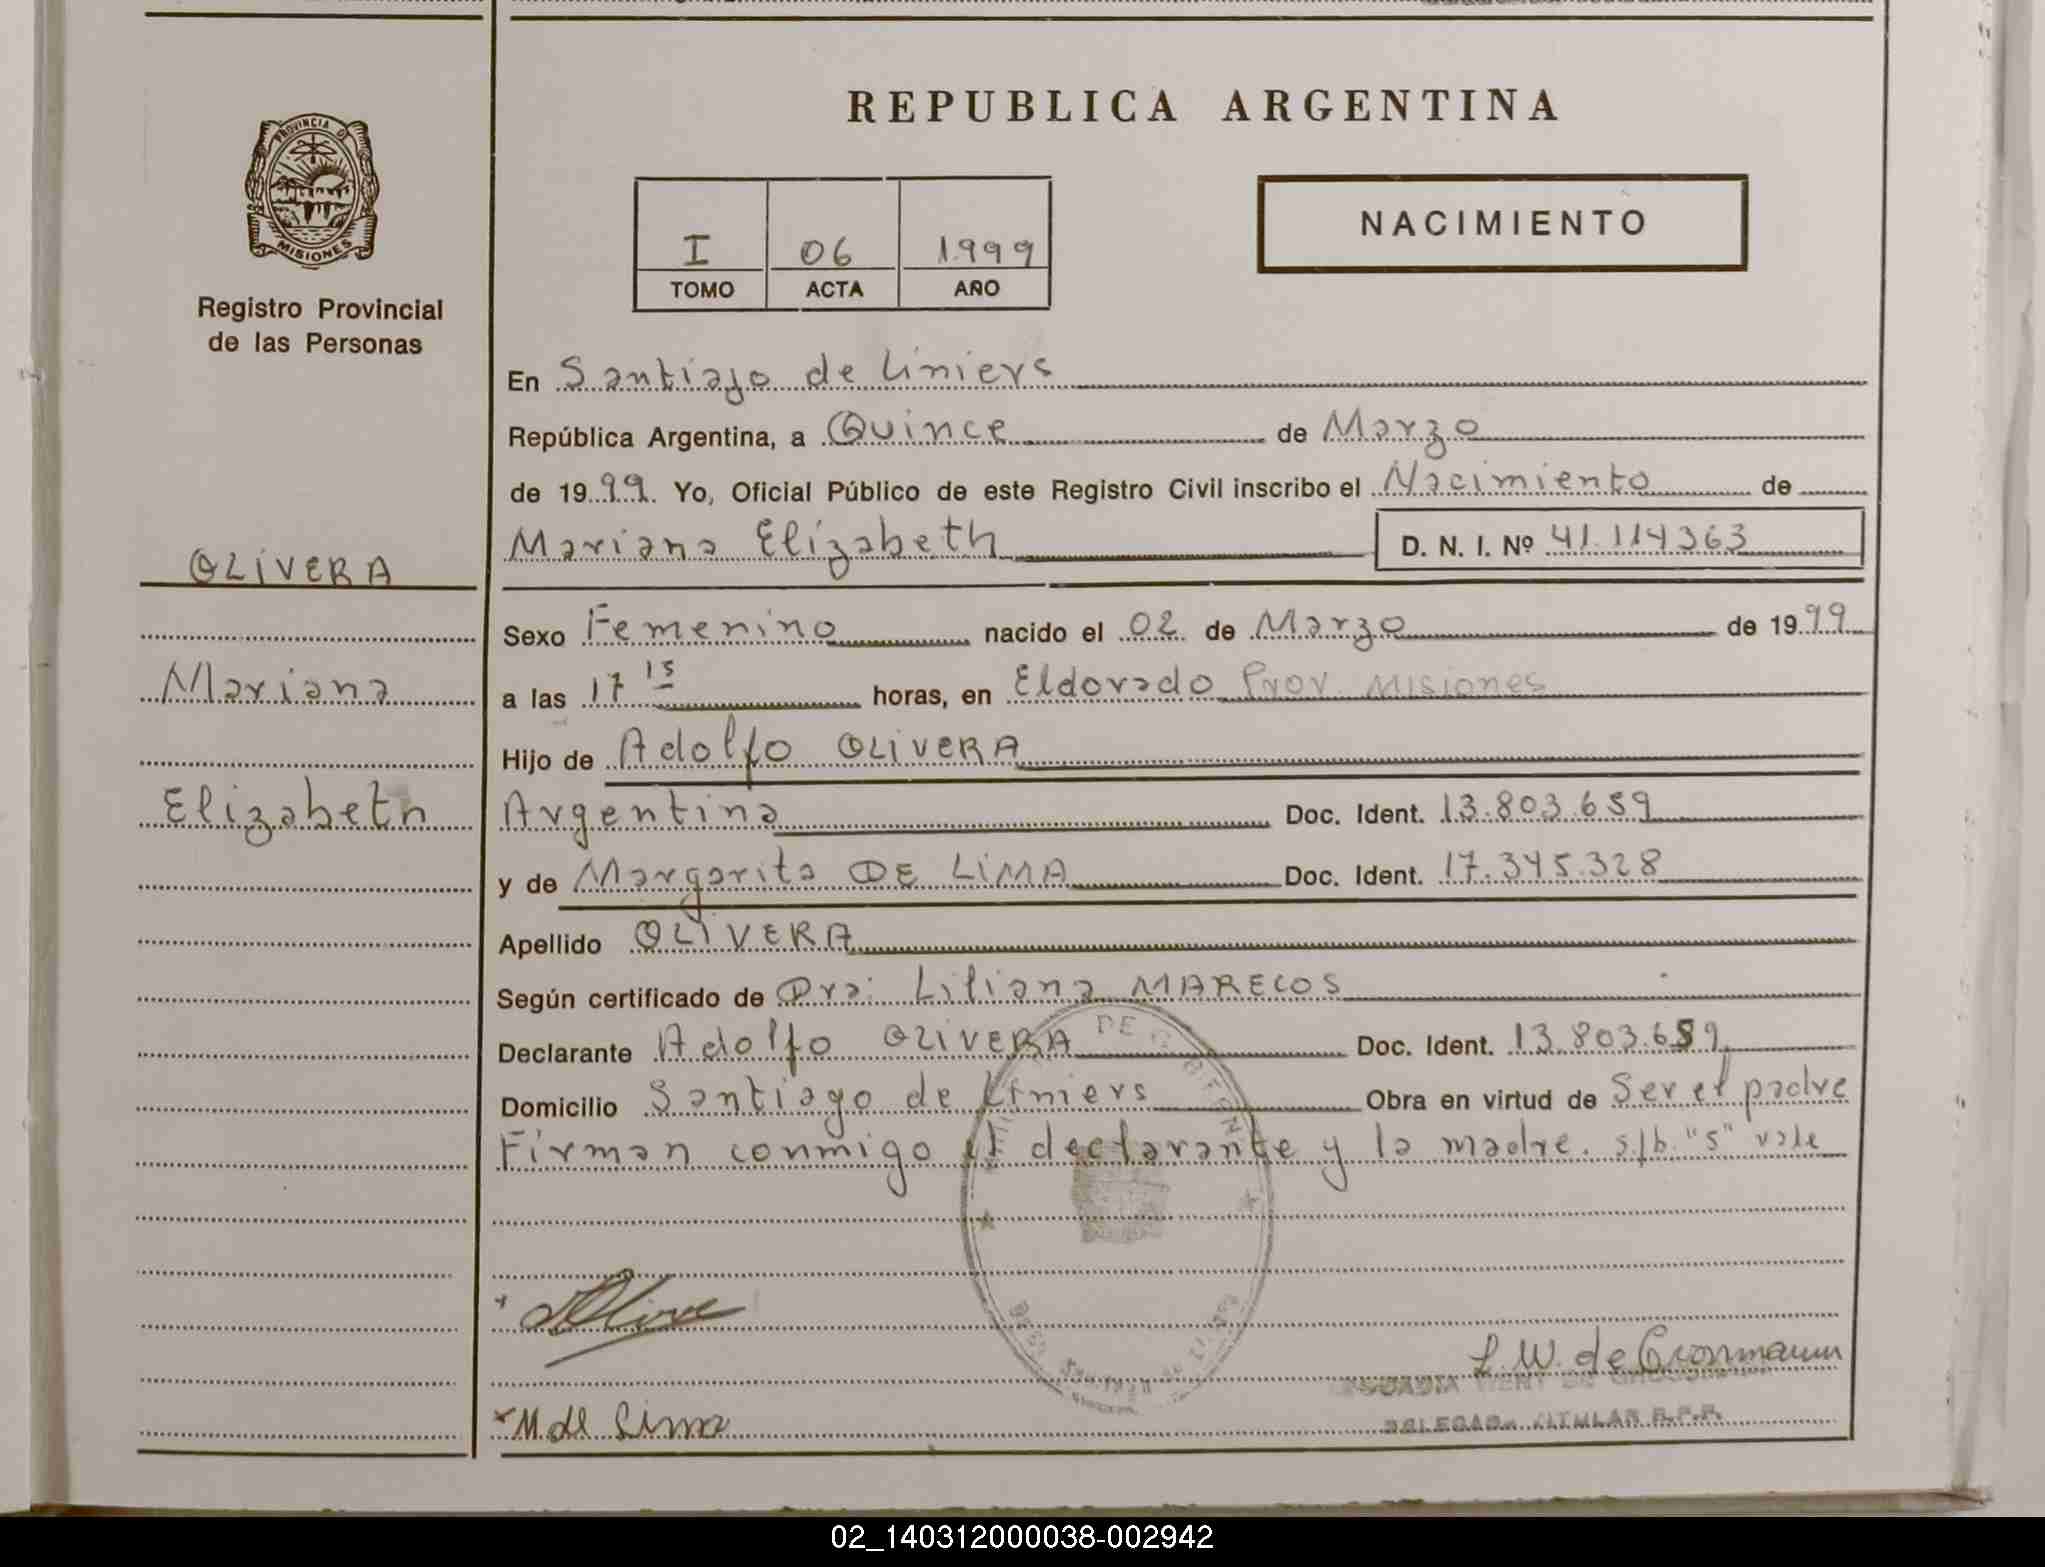 REPUBLICA ARGENTINA
PROVINCIA D
MISIONES
Registro Provincial
de las Personas
I 06 1.999
TOMO ACTA AÑO
NACIMIENTO
En Santiago de Liniers
República Argentina, a Quince de Marzo
de 1999. Yo, Oficial Público de este Registro Civil inscribo el Nacimiento de
Mariana Elizabeth D. N. I. Nº 41.114363
OLIVERA
Sexo Femenino nacido el 02 de Marzo de 1999
Mariana
a las 17 15 horas, en Eldorado Prov. Misiones
Hijo de Adolfo OLIVERA
Elizabeth
Argentina Doc. Ident. 13.803.659
y de Margarita DE LIMA Doc. Ident. 17.345.328
Apellido OLIVERA
Según certificado de Dra: Liliana MARECOS
Declarante Adolfo OLIVERA Doc. Ident. 13.803.659
Domicilio Santiago de Liniers Obra en virtud de Ser el padre
Firman conmigo el declarante y la madre. s/b. "5" vale
DE
L. W. de Cronmaun
M. de Lima
DELEGADA TITULAR R.P.P.
02_140312000038-002942